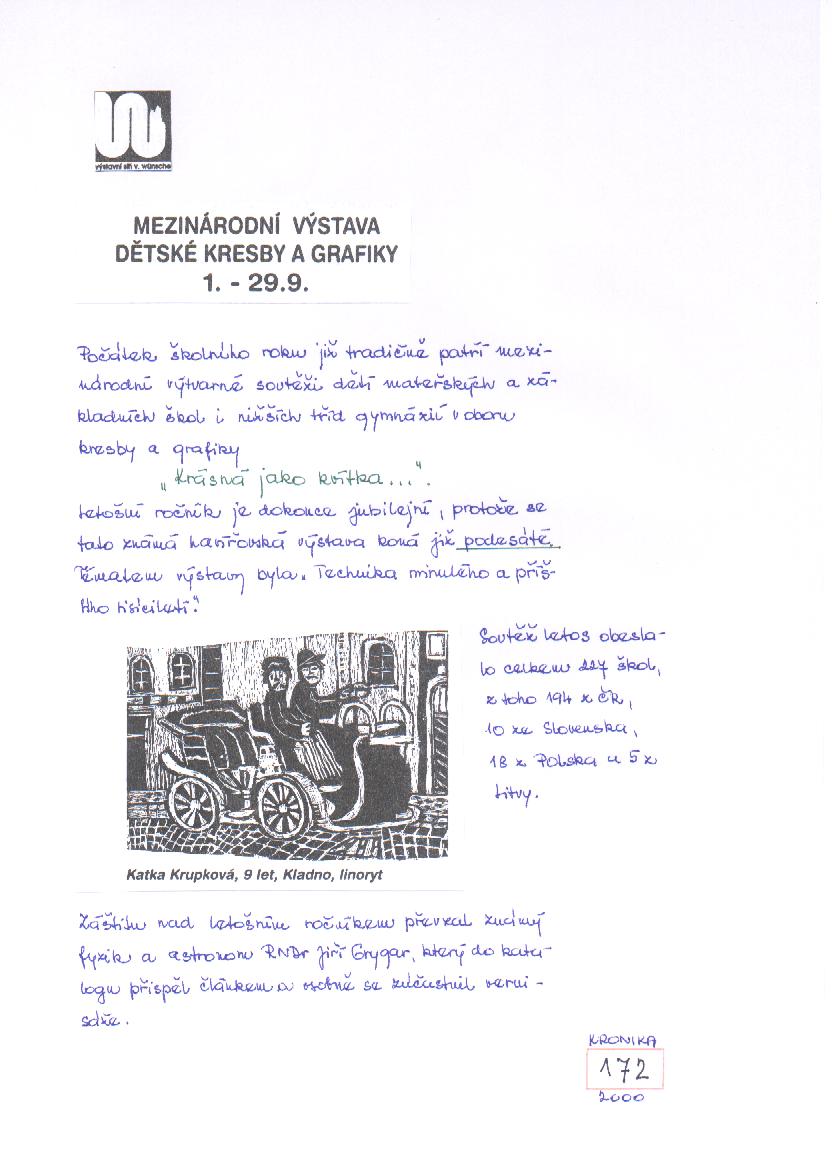 výstavní síň v. wünsche
MEZINÁRODNÍ VÝSTAVA
DĚTSKÉ KRESBY A GRAFIKY
1. - 29.9.
Počátek školního roku již tradičně patří mezi-
národní výtvarné soutěži dětí mateřských a zá-
kladních škol i nižších tříd gymnázií v oboru
kresby a grafiky
„Krásná jako kvítka...“.
Letošní ročník je dokonce jubilejní, protože se
tato známá havířovská výstava koná již podesáté.
Tématem výstavy byla „Technika minulého a příš-
tího tisíciletí.“
Soutěž letos obesla-
lo celkem 227 škol,
z toho 194 z ČR,
10 ze Slovenska,
18 z Polska a 5 z
Litvy.
Katka Krupková, 9 let, Kladno, linoryt
Záštitu nad letošním ročníkem převzal známý
fyzik a astronom RNDr Jiří Grygar, který do kata-
logu přispěl článkem a osobně se zúčastnil verni-
sáže.
KRONIKA
172
2000